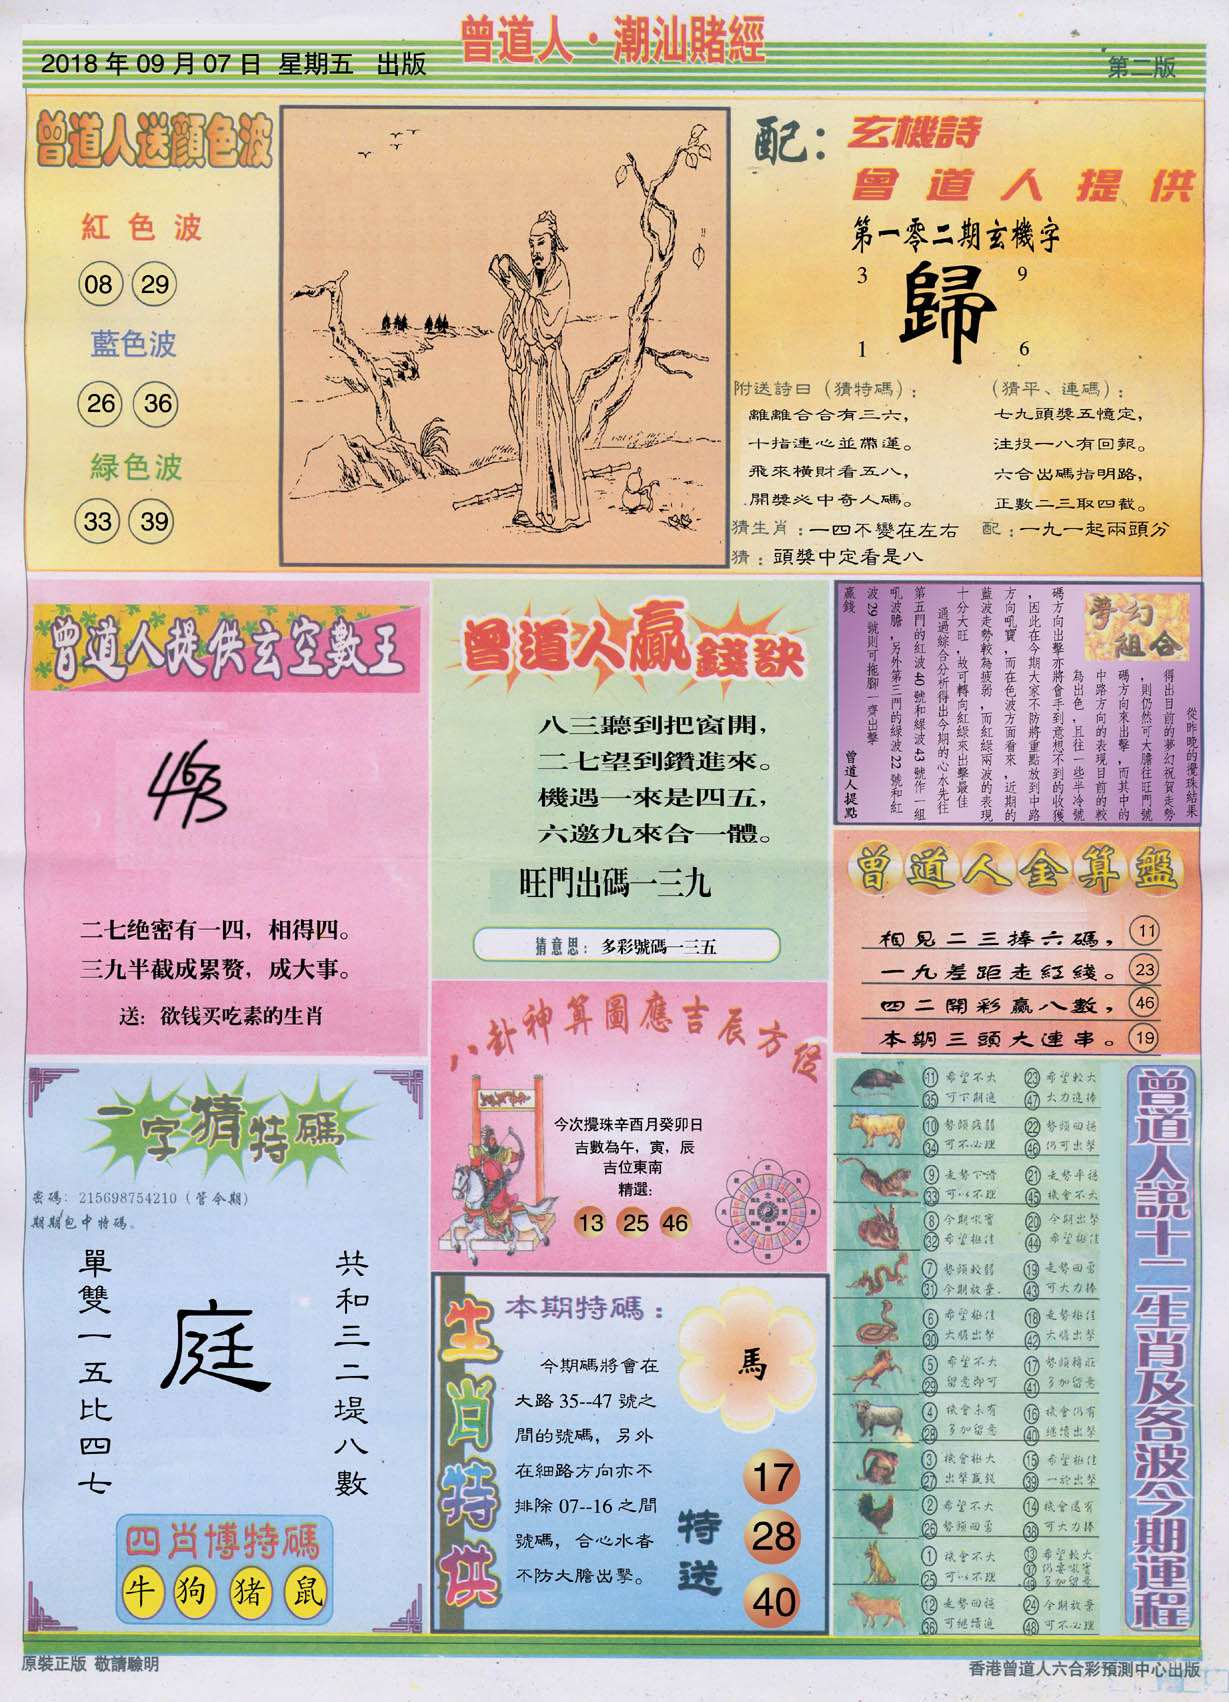 曾道人·潮汕賭經
2018年09月07日 星期五 出版
第二版
曾道人送顏色波
紅色波
08 29
藍色波
26 36
緑色波
33 39
配：玄機詩
曾道人提供
第一零二期玄機字
3 9
歸
1 6
附送詩曰（猜特碼）：
離離合合有三六，
十指連心並帶運。
飛來橫財看五八，
開獎必中奇人碼。
（猜平、連碼）：
七九頭獎五憶定，
注投一八有回報。
六合出碼指明路，
正數二三取四截。
猜生肖：一四不變在左右
配：一九一起兩頭分
猜：頭獎中定看是八
曾道人提供玄空數王
463
二七绝密有一四，相得四。
三九半截成累赘，成大事。
送：欲钱买吃素的生肖
曾道人贏錢訣
八三聽到把窗開，
二七望到鑽進來。
機遇一來是四五，
六邀九來合一體。
旺門出碼一三九
猜意思：多彩號碼一三五
夢幻組合
從昨晚的攪珠結果
得出目前的夢幻祝賀走勢
，則仍然可大膽往旺門號
碼方向來出擊，而其中的
中路方向的表現目前的較
為出色，且往一些半冷號
碼方向出擊亦將會手到意想不到的收獲
，因此在今期大家不防將重點放到中路
方向吼寶，而在色波方面看來，近期的
藍波走勢較為疲弱，而紅綠兩波的表現
十分大旺，故可轉向紅綠來出擊最佳
通過綜合分析得出今期的心水先往
第五門的紅波40號和綠波43號作一組
吼波膽，另外第三門的綠波22號和紅
波29號則可拖腳一齊出擊
贏錢
曾道人提點
曾道人金算盤
相見二三捧六碼， 11
一九差距走紅綫。 23
四二開彩贏八數， 46
本期三頭大連串。 19
八卦神算圖應吉辰方位
今次攪珠辛酉月癸卯日
吉數為午，寅，辰
吉位東南
精選：
13 25 46
一字猜特碼
密碼：215698754210（管令期）
期期包中特碼。
單雙一五比四七
庭
共和三二堤八數
四肖博特碼
牛 狗 猪 鼠
生肖特供
本期特碼：
今期碼將會在
大路35--47號之
間的號碼，另外
在細路方向亦不
排除07--16之間
號碼，合心水者
不防大膽出擊。
馬
特送
17
28
40
曾道人說十二生肖及各波今期運程
11 希望不大 23 希望較大
35 可下期進 47 大力進捧
10 勢頭疲弱 22 勢頭回穩
34 可不必理 46 仍可出擊
9 走勢下滑 21 走勢平穩
33 可以不理 45 機會不大
8 今期吼寶 20 今期出擊
32 希望極佳 44 希望極佳
7 勢頭較弱 19 走勢回勇
31 今期放棄. 43 可大力捧
6 希望極佳 18 走勢極佳
30 大膽出擊 42 大膽出擊
5 希望不大 17 勢頭轉旺
29 留意即可 41 多加留意
4 機會未有 16 機會仍有
28 多加留意 40 繼續出擊
3 機會極大 15 希望極佳
27 出擊贏錢 39 一於出擊
2 希望不大 14 機會還有
26 勢頭回勇 38 可大力捧
1 機會不大 13 希望較大
25 可以不理 37 仍要吼寶
49 多加留意
12 走勢回穩 24 今期放棄
36 可繼續進 48 可不必理
原裝正版 敬請驗明
香港曾道人六合彩預測中心出版